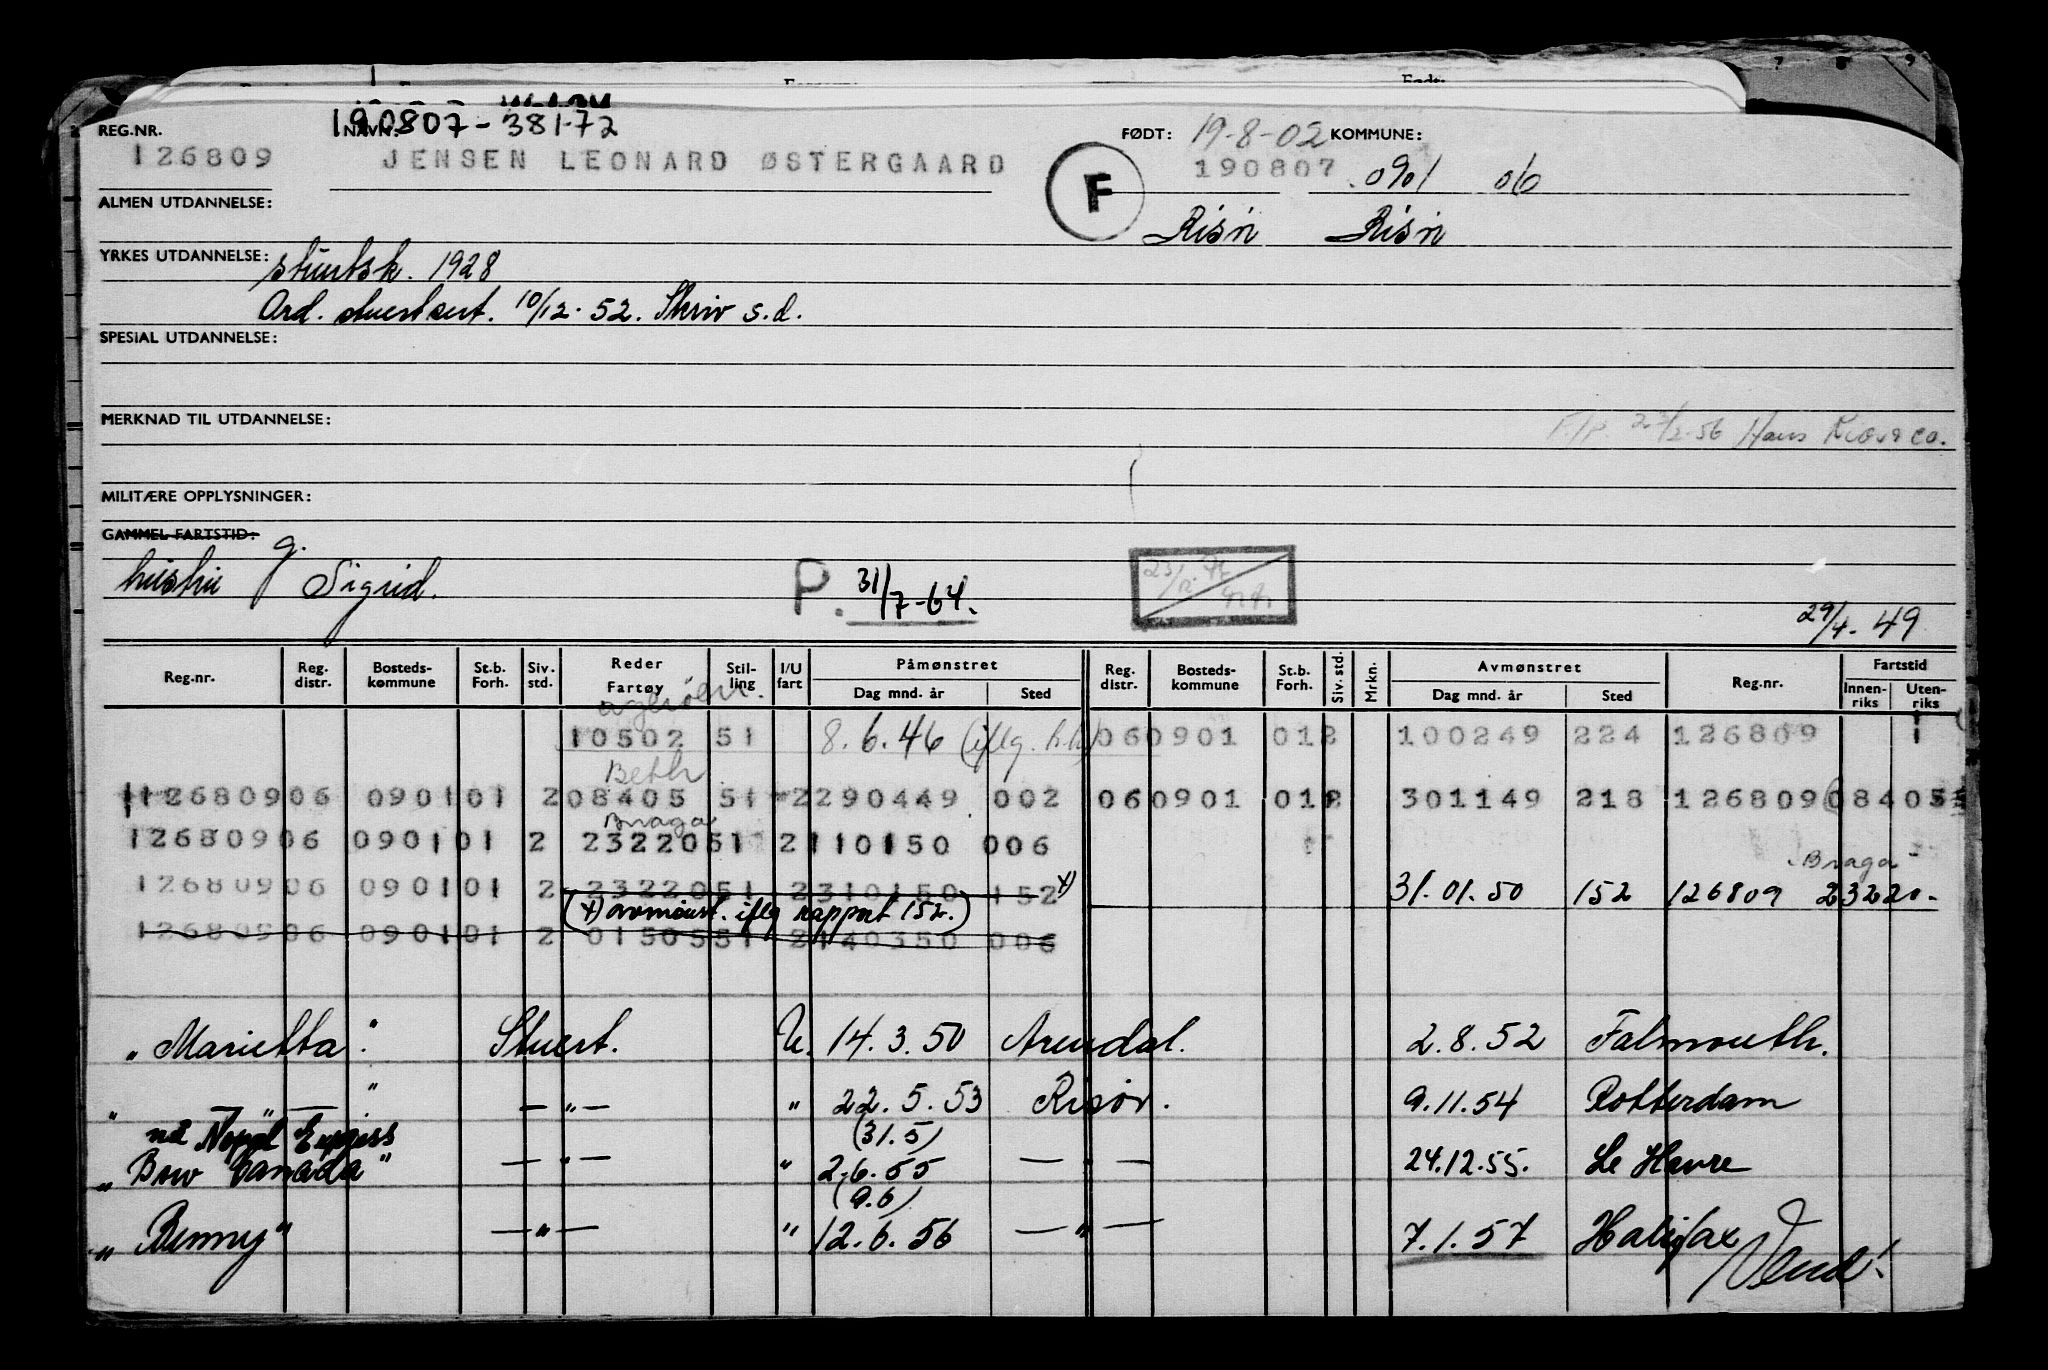 190807-38172
REG.NR. NAVN: FØDT: 19-8-02 KOMMUNE:
126809 JENSEN LEONARD ØSTERGAARD F 190807 0901 06
ALMEN UTDANNELSE: Risør Risør
YRKES UTDANNELSE: stuertsk. 1928
Ord. stuertsert. 10/12-52. Skriv s.d.
SPESIAL UTDANNELSE:
MERKNAD TIL UTDANNELSE: 56 Hans
MILITÆRE OPPLYSNINGER:
GAMMEL FARTSTID: g.
hustru Sigrid. P. 31/7-64.
29/4-49
Reg.nr. Reg. distr. Bosteds-kommune St.b. Forh. Siv. std. Reder Fartøy Stil-ling I/U fart Påmønstret Dag mnd. år Sted Reg. distr. Bosteds-kommune St.b. Forh. Siv. std. Mrkn. Avmønstret Dag mnd. år Sted Reg.nr. Fartstid Innen-riks Uten-riks
10502 51 8.6.46 (iflg. h.h) 06 0901 01 2 100249 224 126809 1
Beth
126809 06 0901 01 2 08405 51 2 290449 002 06 0901 01 2 301149 218 126809 08405
Braga
126809 06 0901 01 2 23220 51 2 110150 006
Braga
126809 06 0901 01 2 23220 51 2 310150 152 x) 31.01.50 152 126809 23220-
(x) avmønst. iflg rapport 152.)
126809 06 0901 01 2 01505 51 2 140350 006
"Marietta" Stuert. U. 14.3.50 Arendal. 2.8.52 Falmouth.
" — " — " — " — " 22.5.53 Risør. 9.11.54 Rotterdam
nå Nopal Express (31.5)
"Bow Canada" — " — " 2.6.55 — " — 24.12.55. Le Havre
(9.6)
"Benny" — " — " 12.6.56 — " — 7.1.57 Halifax
Vend!